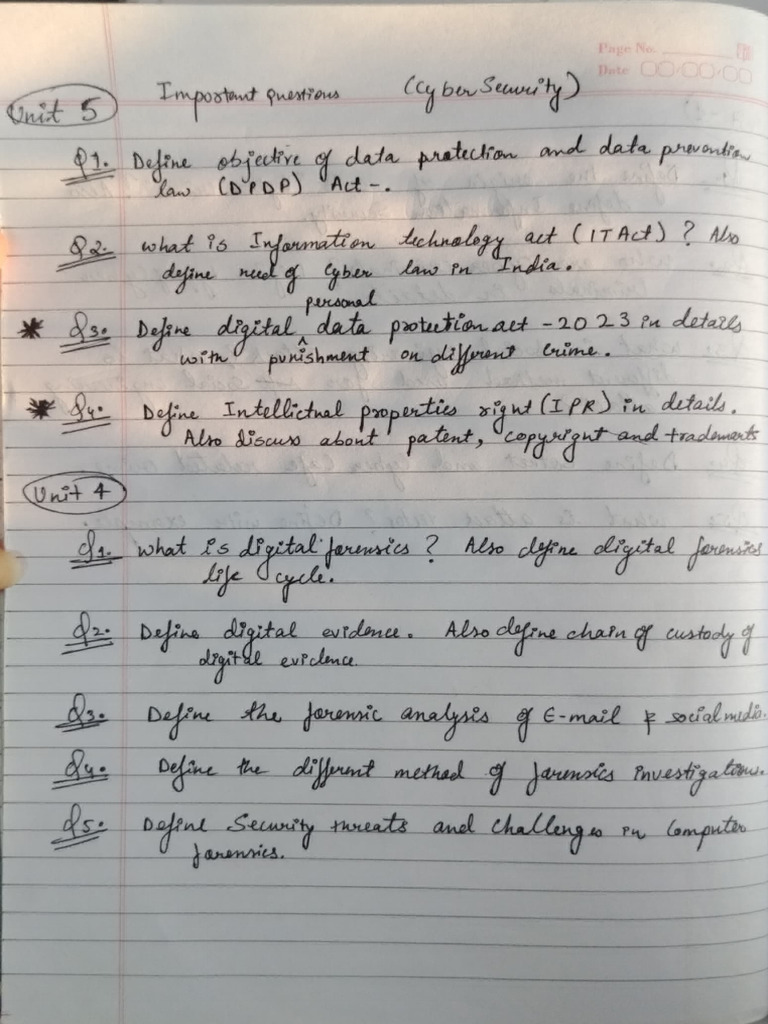 Page No.
Date
Important questions (Cyber Security)
Unit 5
Q1. Define objective of data protection and data prevention
law (DPDP) Act -.
Q2. what is Information technology act (IT Act) ? Also
define need of Cyber law in India.
personal
* Q3. Define digital ^ data protection act - 2023 in details
with punishment on different crime.
* Q4. Define Intellictual properties right (IPR) in details.
Also discuss about patent, copyright and trademarks
Unit 4
Q1. what is digital forensics ? Also define digital forensics
life cycle.
Q2. Define digital evidence. Also define chain of custody of
digital evidence
Q3. Define the forensic analysis of E-mail & social media.
Q4. Define the different method of forensics investigations.
Q5. Define Security threats and challenges in Computer
forensics.